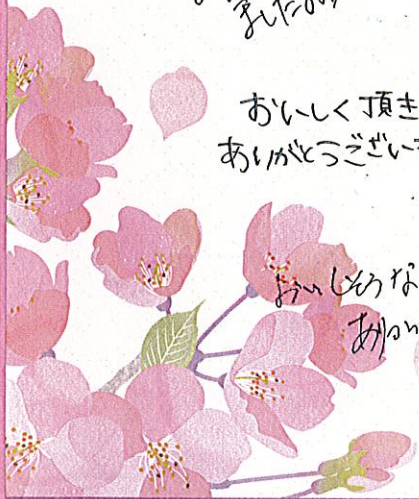 ましたの
おいしく頂き
ありがとうござい
おいしそうな
あり